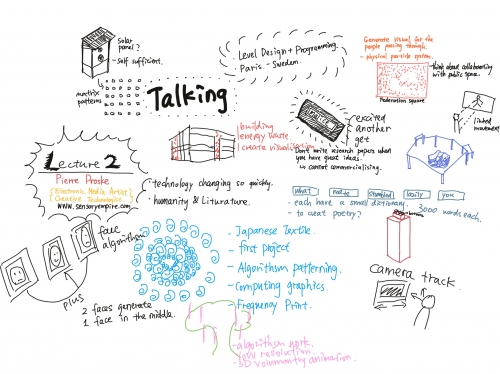 solar
panel?
- Self sufficient.
matrix
patterns
Talking
Level Design + Programming.
Paris. - Sweden.
Generate visual for the
people passing through.
- physical particle system.
Federation Square
think about collaborating
with public space.
linked
movement
Lecture 2
Pierre Proske
(Electronic Media Artist)
(Creative Technologies.
www.sensoryempire.com
building
energy waste.
create visualisation
excited
another
get
Dont write research papers when
you have great ideas.
commercialising.
· technology changing so quickly.
· humanity & Liturature.
what
mate
stumbled
easily
you
- each have a small dictionary.
3000 words each.
- to creat poetry?
face
algorithm
plus
2 faces generate
1 face in the middle.
- Japanese Textile.
- first project
- Algorithm patterning.
- Computing graphics.
- Frequency Print.
- algorithm work.
- low resolution.
- 3D volumentry animation.
camera track.